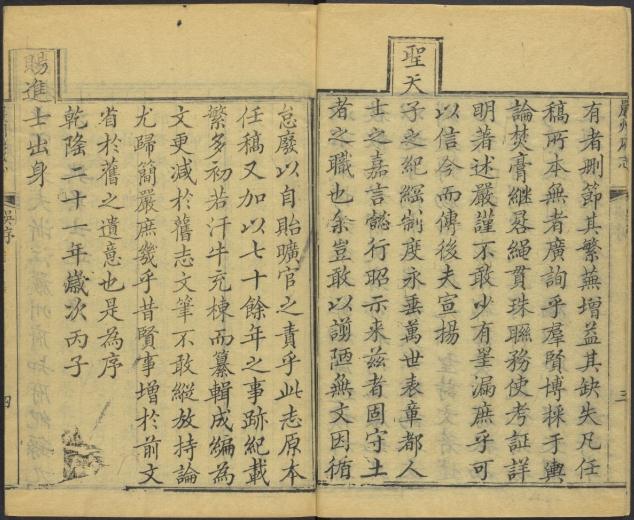 有者删節其繁蕪增益其缺失凡任
稿所本無者廣詢乎羣賢博採于輿
論焚膏繼晷繩貫珠聯務使考証詳
明著述嚴謹不敢少有罣漏庶乎可
以信今而傳後夫宣揚
聖天子之紀綱制度永垂萬世表章都人
士之嘉言懿行昭示来兹者固守土
者之職也余豈敢以謭陋無文因循
三
怠廢以自貽曠官之責乎此志原本
任稿又加以七十餘年之事跡紀載
繁多初若汗牛充棟而纂輯成編為
文更减於舊志文筆不敢縱放持論
尤歸簡嚴庶幾乎昔賢事增於前文
省於舊之遺意也是為序
乾隆二十一年歲次丙子
賜進士出身
四